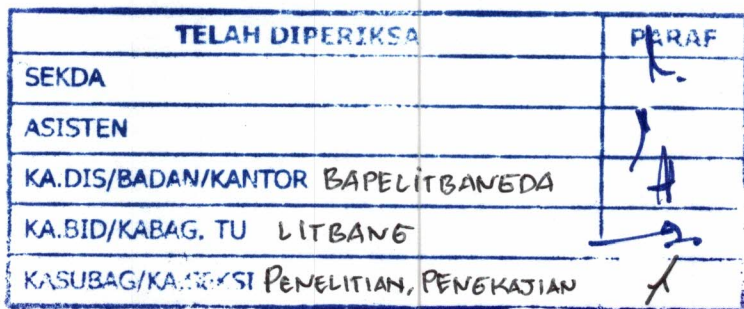 TELAH DIPERIKSA PARAF
SEKDA
ASISTEN
KA.DIS/BADAN/KANTOR BAPELITBANGDA
KA.BID/KABAG. TU LITBANG
KASUBAG/KA.SEKSI PENELITIAN, PENGKAJIAN